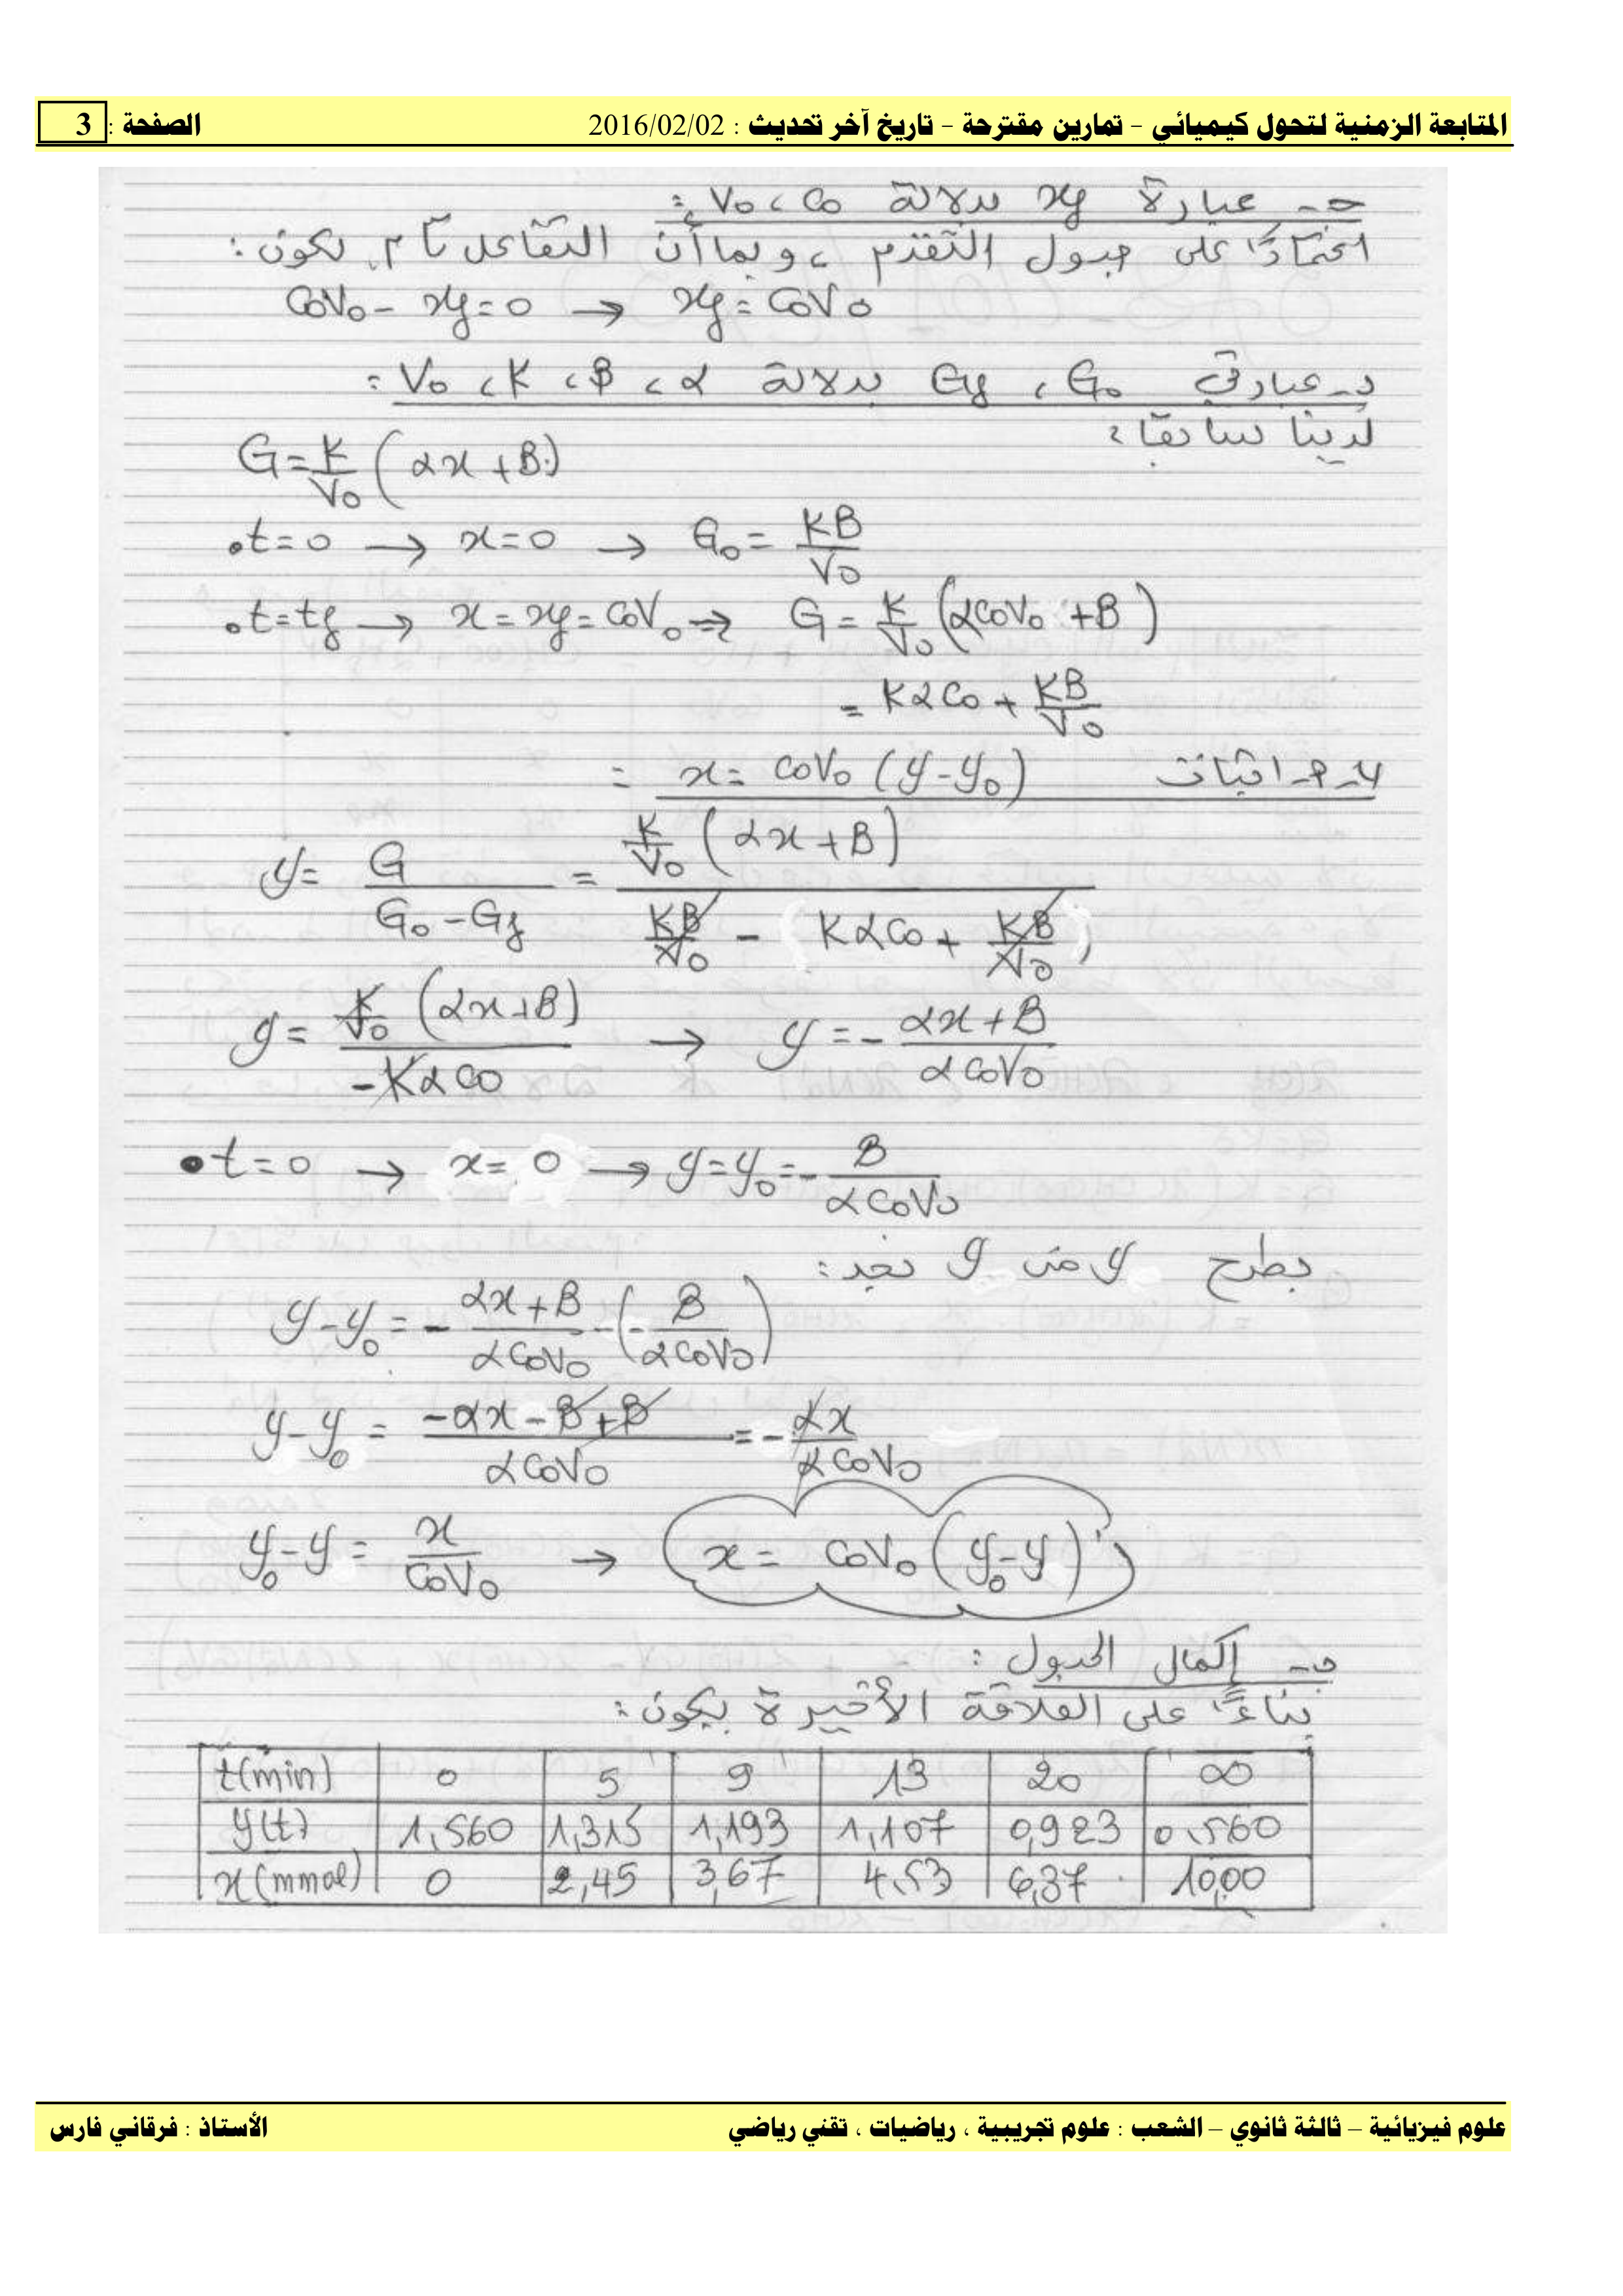 المتابعة الزمنية لتحول كيميائي - تمارين مقترحة - تاريخ آخر تحديث : 2016/02/02 الصفحة : 3
جـ- عبارة xf بدلالة V0 ، C0 :
اعتمادًا على جدول التقدم ، وبما أن التفاعل تام يكون :
C0V0 - xf = 0 → xf = C0V0
د- عبارتي G0 ، Gf بدلالة α ، B ، K ، V0 :
لدينا سابقا :
G = K/V0 (αx + B)
• t = 0 → x = 0 → G0 = KB/V0
• t = tf → x = xf = C0V0 → G = K/V0 (αC0V0 + B)
= KαC0 + KB/V0
4-أ- اثبات x = C0V0 (y - y0) =
y = G/(G0 - Gf) = K/V0 (αx + B) / (KB/V0 - (KαC0 + KB/V0))
y = K/V0 (αx + B) / -KαC0 → y = - (αx + B)/(αC0V0)
• t = 0 → x = 0 → y = y0 = - B/(αC0V0)
بطرح y من y نجد :
y - y0 = - (αx + B)/(αC0V0) - (- B/(αC0V0))
y - y0 = (-αx - B + B)/(αC0V0) = - αx/(αC0V0)
y0 - y = x/(C0V0) → x = C0V0 (y0 - y)
ب- إكمال الجدول :
بناءًا على العلاقة الأخيرة يكون :
t(min) 0 5 9 13 20 ∞
y(t) 1,560 1,315 1,193 1,107 0,923 0,560
x(mmol) 0 2,45 3,67 4,53 6,37 10,00
علوم فيزيائية – ثالثة ثانوي – الشعب : علوم تجريبية ، رياضيات ، تقني رياضي الأستاذ : فرقاني فارس